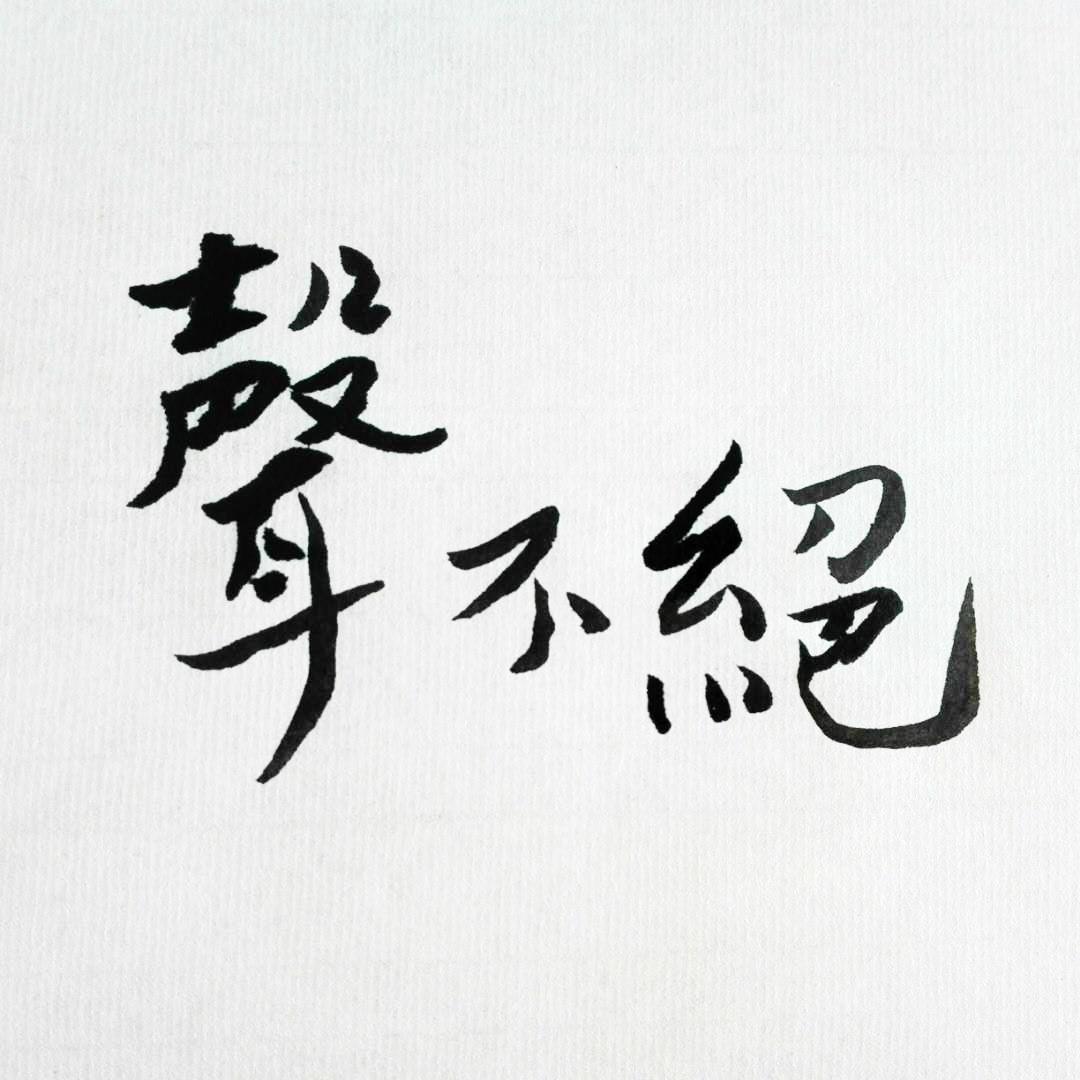 聲不絕